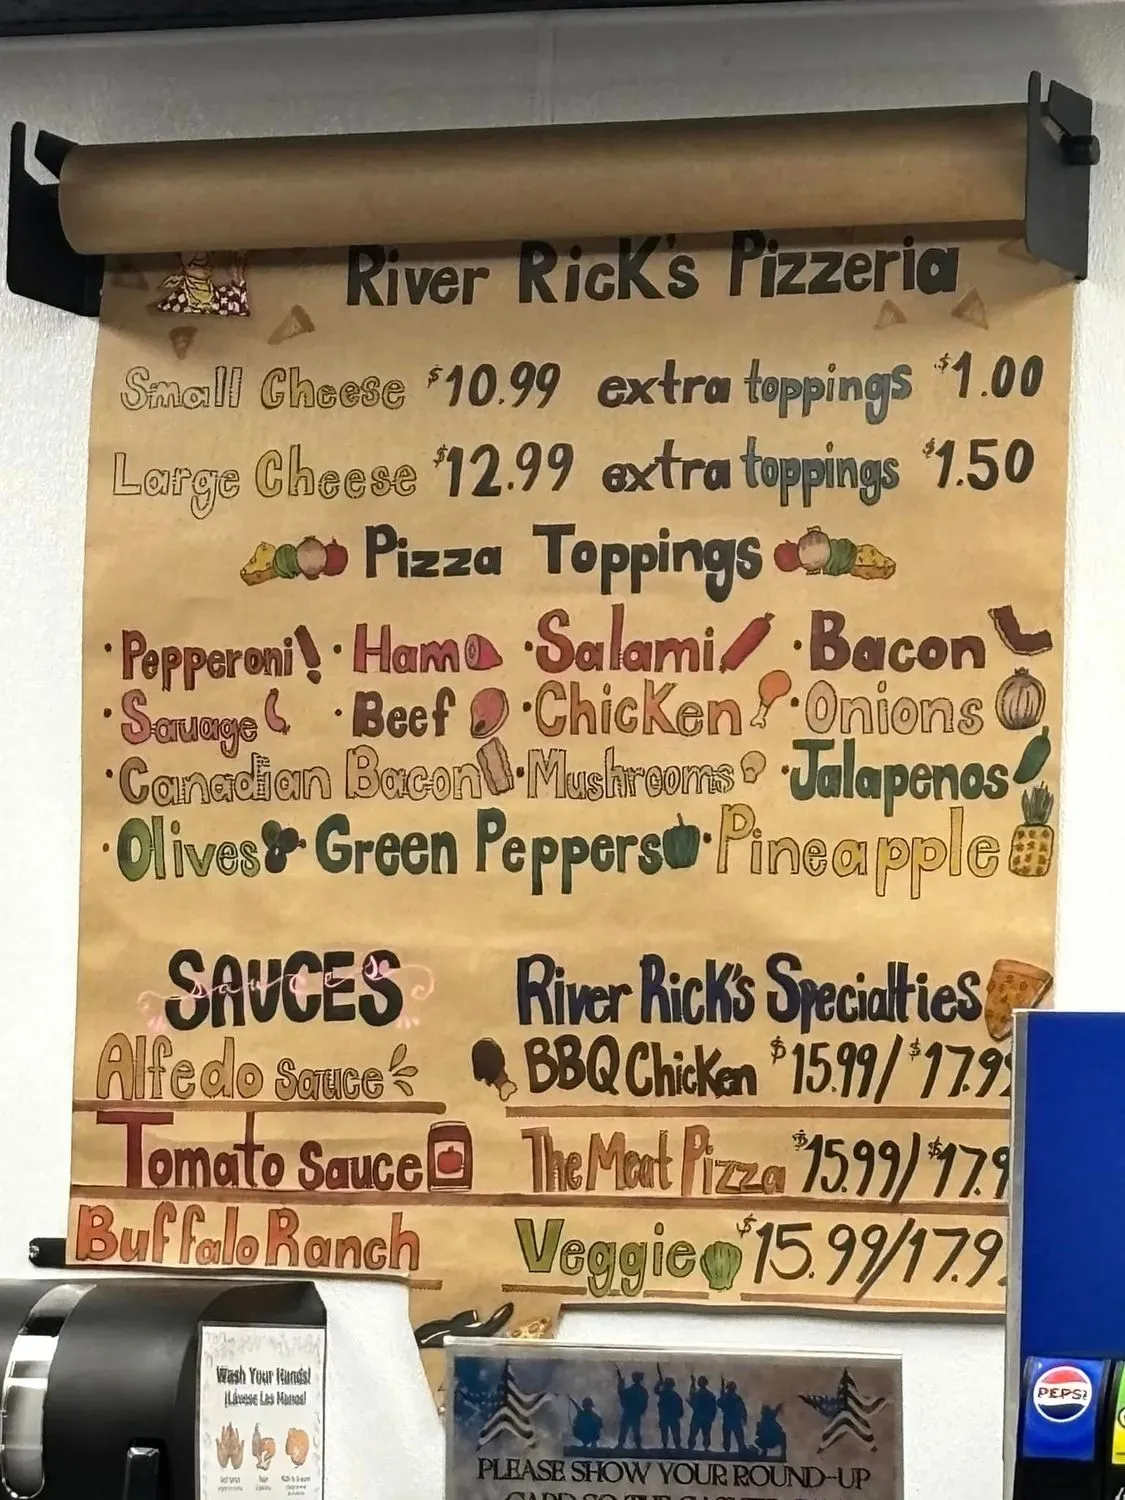 River Rick's Pizzeria
Small Cheese $10.99 extra toppings $1.00
Large Cheese $12.99 extra toppings $1.50
Pizza Toppings
·Pepperoni ·Ham ·Salami ·Bacon
·Sauage ·Beef ·Chicken ·Onions
·Canadian Bacon ·Mushrooms ·Jalapenos
·Olives Green Peppers ·Pineapple
SAUCES
sauces
Alfedo Sauce
Tomato Sauce
Buffalo Ranch
River Rick's Specialties
BBQ Chicken $15.99/$17.99
The Meat Pizza $15.99/$17.9
Veggie $15.99/17.9
Wash Your Hands!
¡Lávese Las Manos!
PLEASE SHOW YOUR ROUND-UP
PEPSI